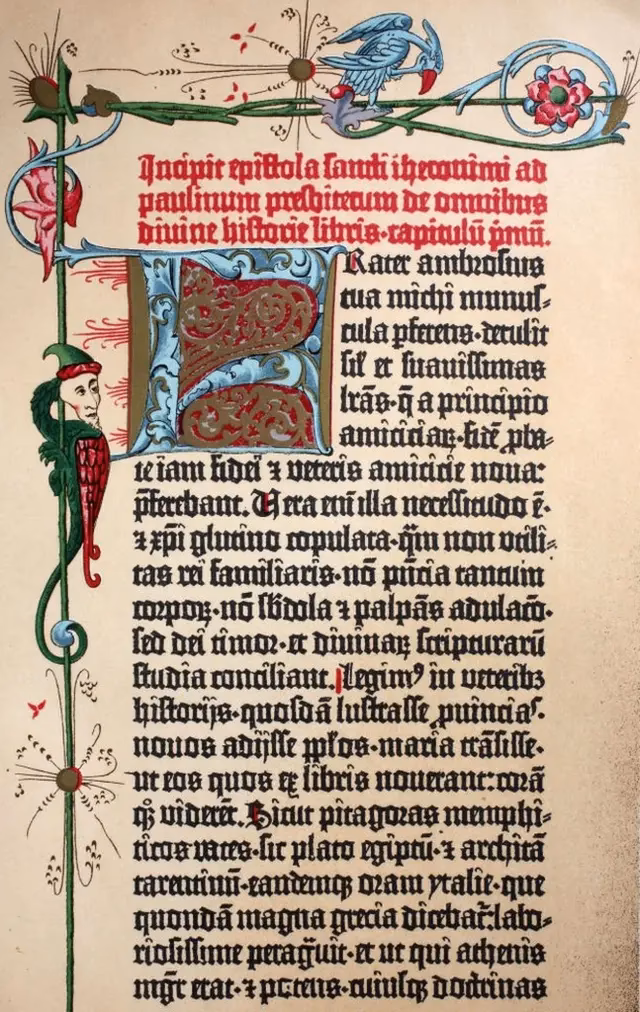 Incipit epistola sancti iheronimi ad
paulinum presbiterum de omnibus
divine historie libris·capitulū pmū.
FRater ambrosius
tua michi munus⸗
cula pferens·detulit
sił et suavissimas
lrās·q̄ a principio
amiciciaꝝ·fidē pba⸗
te iam fidei ⁊ veteris amicicie noua:
pferebant. Vera eni illa necessitudo ē·
⁊ xpi glutino copulata·qm non vtili⸗
tas rei familiaris·nō pn̄cia tantum
corpoꝝ·nō sbdola ⁊ palpās adulaco·
sed dei timor·et diuinaꝝ scripturarū
studia conciliant. Legimꝰ in veteribꝫ
historijs·quosdā lustrasse puincias·
nouos adijsse pplos·maria trāsisse·
ut eos quos ex libris nouerant: corā
qꝫ viderēt. Sicut pitagoras memphi⸗
ticos vates·sic plato egiptū·⁊ architā
tarentinū·eandemqꝫ oram ytalie·que
quondā magna grecia dicebat̄: labo⸗
riosissime peragūit·et ut qui athenis
mgr̄ erat·⁊ potens·cuiusqꝫ doctrinas